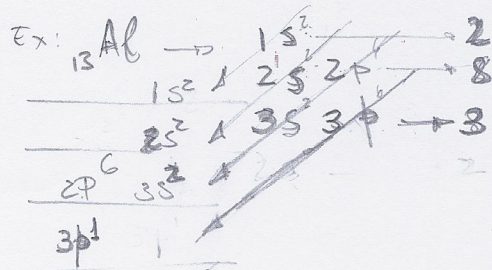 Ex: ₁₃Al → 1s² → 2
1s² 2s² 2p⁶ → 8
2s² 3s² 3p⁶ → 3
2p⁶ 3s²
3p¹